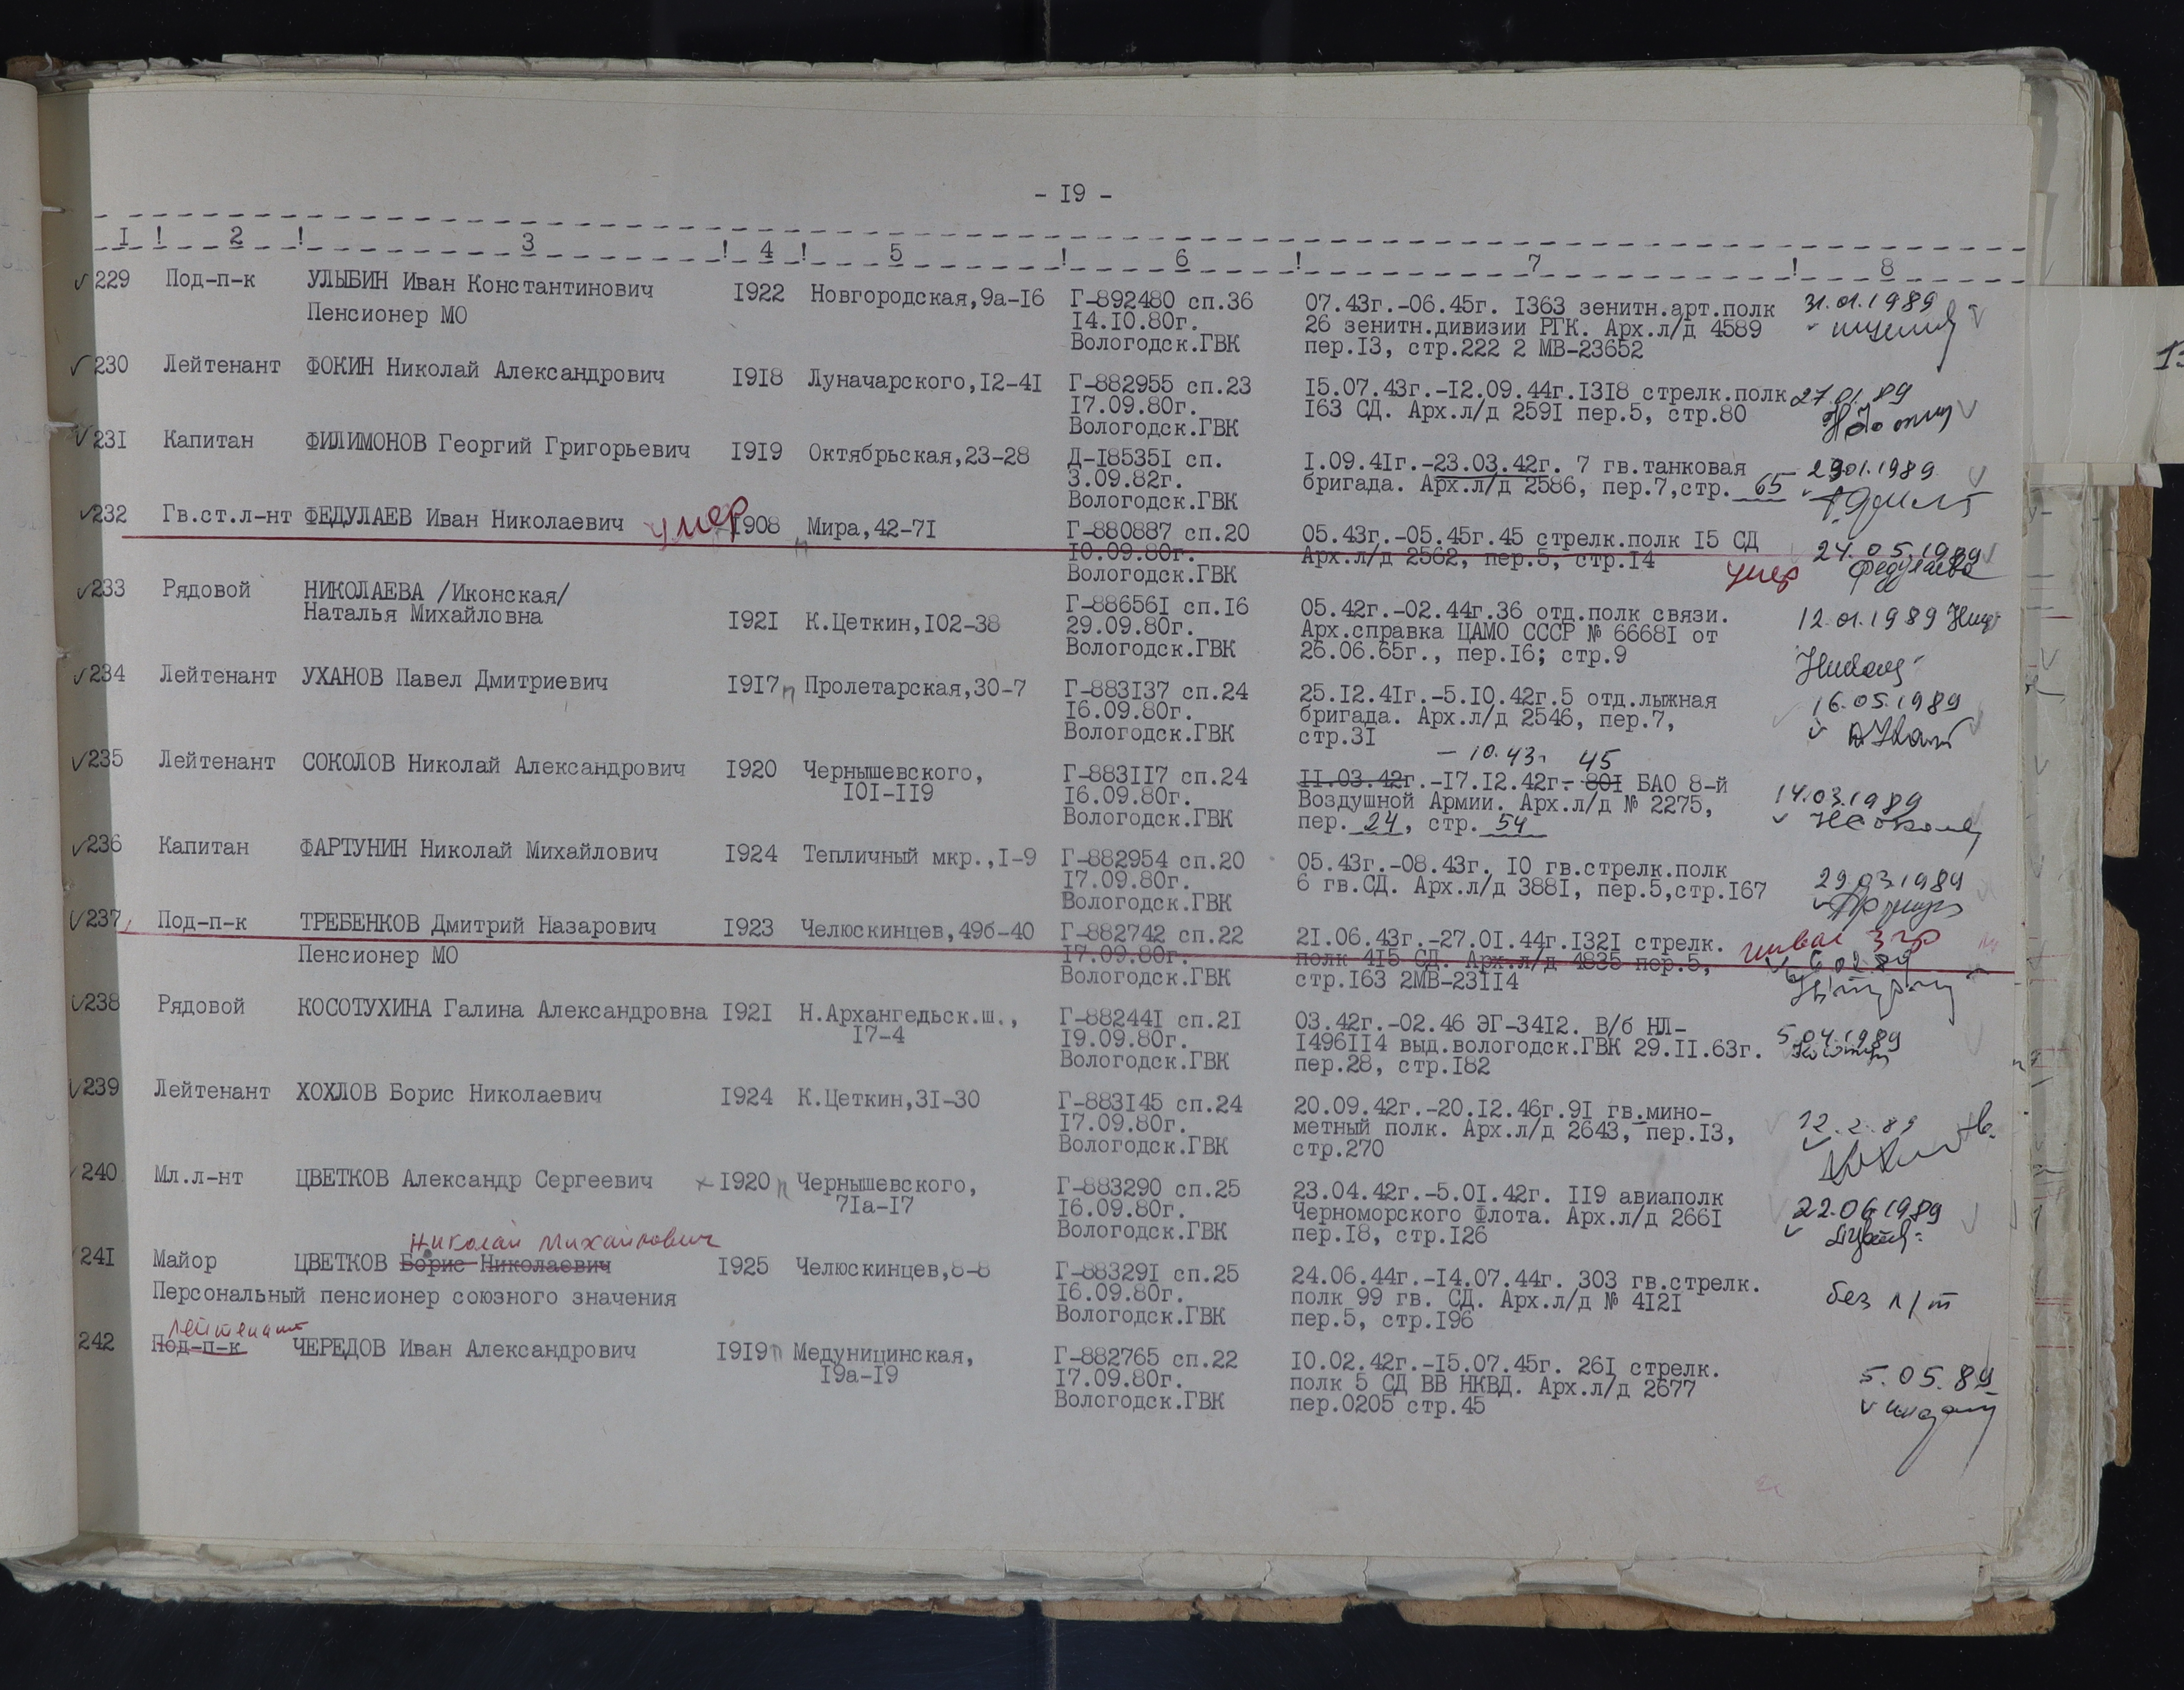 - I9 -
I ! 2 ! 3 ! 4 ! 5 ! 6 ! 7 ! 8
229 Под-п-к УЛЫБИН Иван Константинович I922 Новгородская,9а-I6 Г-892480 сп.36 07.43г.-06.45г. I363 зенитн.арт.полк 31.01.1989
Пенсионер МО I4.I0.80г. 26 зенитн.дивизии РГК. Арх.л/д 4589
Вологодск.ГВК пер.I3, стр.222 2 МВ-23652
230 Лейтенант ФОКИН Николай Александрович I9I8 Луначарского,I2-4I Г-882955 сп.23 I5.07.43г.-I2.09.44г.I3I8 стрелк.полк 27.01.89
I7.09.80г. I63 СД. Арх.л/д 259I пер.5, стр.80
Вологодск.ГВК
23I Капитан ФИЛИМОНОВ Георгий Григорьевич I9I9 Октябрьская,23-28 Д-I8535I сп. I.09.4Iг.-23.03.42г. 7 гв.танковая 29.01.1989
3.09.82г. бригада. Арх.л/д 2586, пер.7,стр. 65
Вологодск.ГВК
232 Гв.ст.л-нт ФЕДУЛАЕВ Иван Николаевич умер I908 Мира,42-7I Г-880887 сп.20 05.43г.-05.45г.45 стрелк.полк I5 СД 24.05.1989
I0.09.80г. Арх.л/д 2562, пер.5, стр.I4 умер Федулаева
Вологодск.ГВК
233 Рядовой НИКОЛАЕВА /Иконская/ Г-88656I сп.I6 05.42г.-02.44г.36 отд.полк связи. 12.01.1989
Наталья Михайловна I92I К.Цеткин,I02-38 29.09.80г. Арх.справка ЦАМО СССР № 6668I от
Вологодск.ГВК 26.06.65г., пер.I6; стр.9
234 Лейтенант УХАНОВ Павел Дмитриевич I9I7 п Пролетарская,30-7 Г-883I37 сп.24 25.I2.4Iг.-5.I0.42г.5 отд.лыжная 16.05.1989
I6.09.80г. бригада. Арх.л/д 2546, пер.7,
Вологодск.ГВК стр.3I
- 10.43г. 45
235 Лейтенант СОКОЛОВ Николай Александрович I920 Чернышевского, Г-883II7 сп.24 II.03.42г.-I7.I2.42г.- 80I БАО 8-й 14.03.1989
I0I-II9 I6.09.80г. Воздушной Армии. Арх.л/д № 2275,
Вологодск.ГВК пер. 24, стр. 54
236 Капитан ФАРТУНИН Николай Михайлович I924 Тепличный мкр.,I-9 Г-882954 сп.20 05.43г.-08.43г. I0 гв.стрелк.полк 29.03.1989
I7.09.80г. 6 гв.СД. Арх.л/д 388I, пер.5,стр.I67
Вологодск.ГВК
237 Под-п-к ТРЕБЕНКОВ Дмитрий Назарович I923 Челюскинцев,49б-40 Г-882742 сп.22 2I.06.43г.-27.0I.44г.I32I стрелк.
Пенсионер МО I7.09.80г. полк 4I5 СД. Арх.л/д 4835 пер.5, 6.02.89
Вологодск.ГВК стр.I63 2МВ-23II4
238 Рядовой КОСОТУХИНА Галина Александровна I92I Н.Архангедьск.ш., Г-88244I сп.2I 03.42г.-02.46 ЭГ-34I2. В/б НЛ- 5.04.1989
I7-4 I9.09.80г. I496II4 выд.вологодск.ГВК 29.II.63г.
Вологодск.ГВК пер.28, стр.I82
239 Лейтенант ХОХЛОВ Борис Николаевич I924 К.Цеткин,3I-30 Г-883I45 сп.24 20.09.42г.-20.I2.46г.9I гв.мино- 12.2.89
I7.09.80г. метный полк. Арх.л/д 2643, пер.I3,
Вологодск.ГВК стр.270
240 Мл.л-нт ЦВЕТКОВ Александр Сергеевич I920 п Чернышевского, Г-883290 сп.25 23.04.42г.-5.0I.42г. II9 авиаполк 22.06.1989
7Iа-I7 I6.09.80г. Черноморского Флота. Арх.л/д 266I
Вологодск.ГВК пер.I8, стр.I26
Николай Михайлович
24I Майор ЦВЕТКОВ Борис Николаевич I925 Челюскинцев,8-8 Г-88329I сп.25 24.06.44г.-I4.07.44г. 303 гв.стрелк. без п/т
Персональный пенсионер союзного значения I6.09.80г. полк 99 гв. СД. Арх.л/д № 4I2I
Вологодск.ГВК пер.5, стр.I96
лейтенант
242 Под-п-к ЧЕРЕДОВ Иван Александрович I9I9 п Медуницинская, Г-882765 сп.22 I0.02.42г.-I5.07.45г. 26I стрелк. 5.05.89
I9а-I9 I7.09.80г. полк 5 СД ВВ НКВД. Арх.л/д 2677
Вологодск.ГВК пер.0205 стр.45